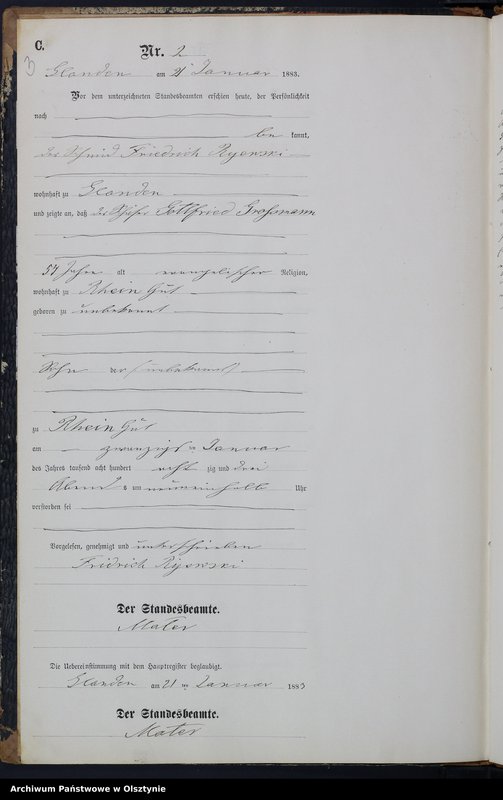 C.
Nr. 2
3
Glanden am 21 ten Januar 1883.
Vor dem unterzeichneten Standesbeamten erschien heute, der Persönlichkeit
nach
be kannt,
der Schmid Friedrich Ryewski
wohnhaft zu Glanden
und zeigte an, daß der Schäfer Gottfried Großmann
57 Jahre alt evangelischer Religion,
wohnhaft zu Rhein Gut
geboren zu unbekannt
Sohn der (unbekannt)
zu Rhein Gut
am zwanzigsten Januar
des Jahres tausend acht hundert acht zig und drei
Abends um neuneinhalb Uhr
verstorben sei
Vorgelesen, genehmigt und unterschrieben
Fridrich Ryewski
Der Standesbeamte.
Mater
Die Uebereinstimmung mit dem Hauptregister beglaubigt.
Glanden am 21 ten Januar 1883
Der Standesbeamte.
Mater
Archiwum Państwowe w Olsztynie